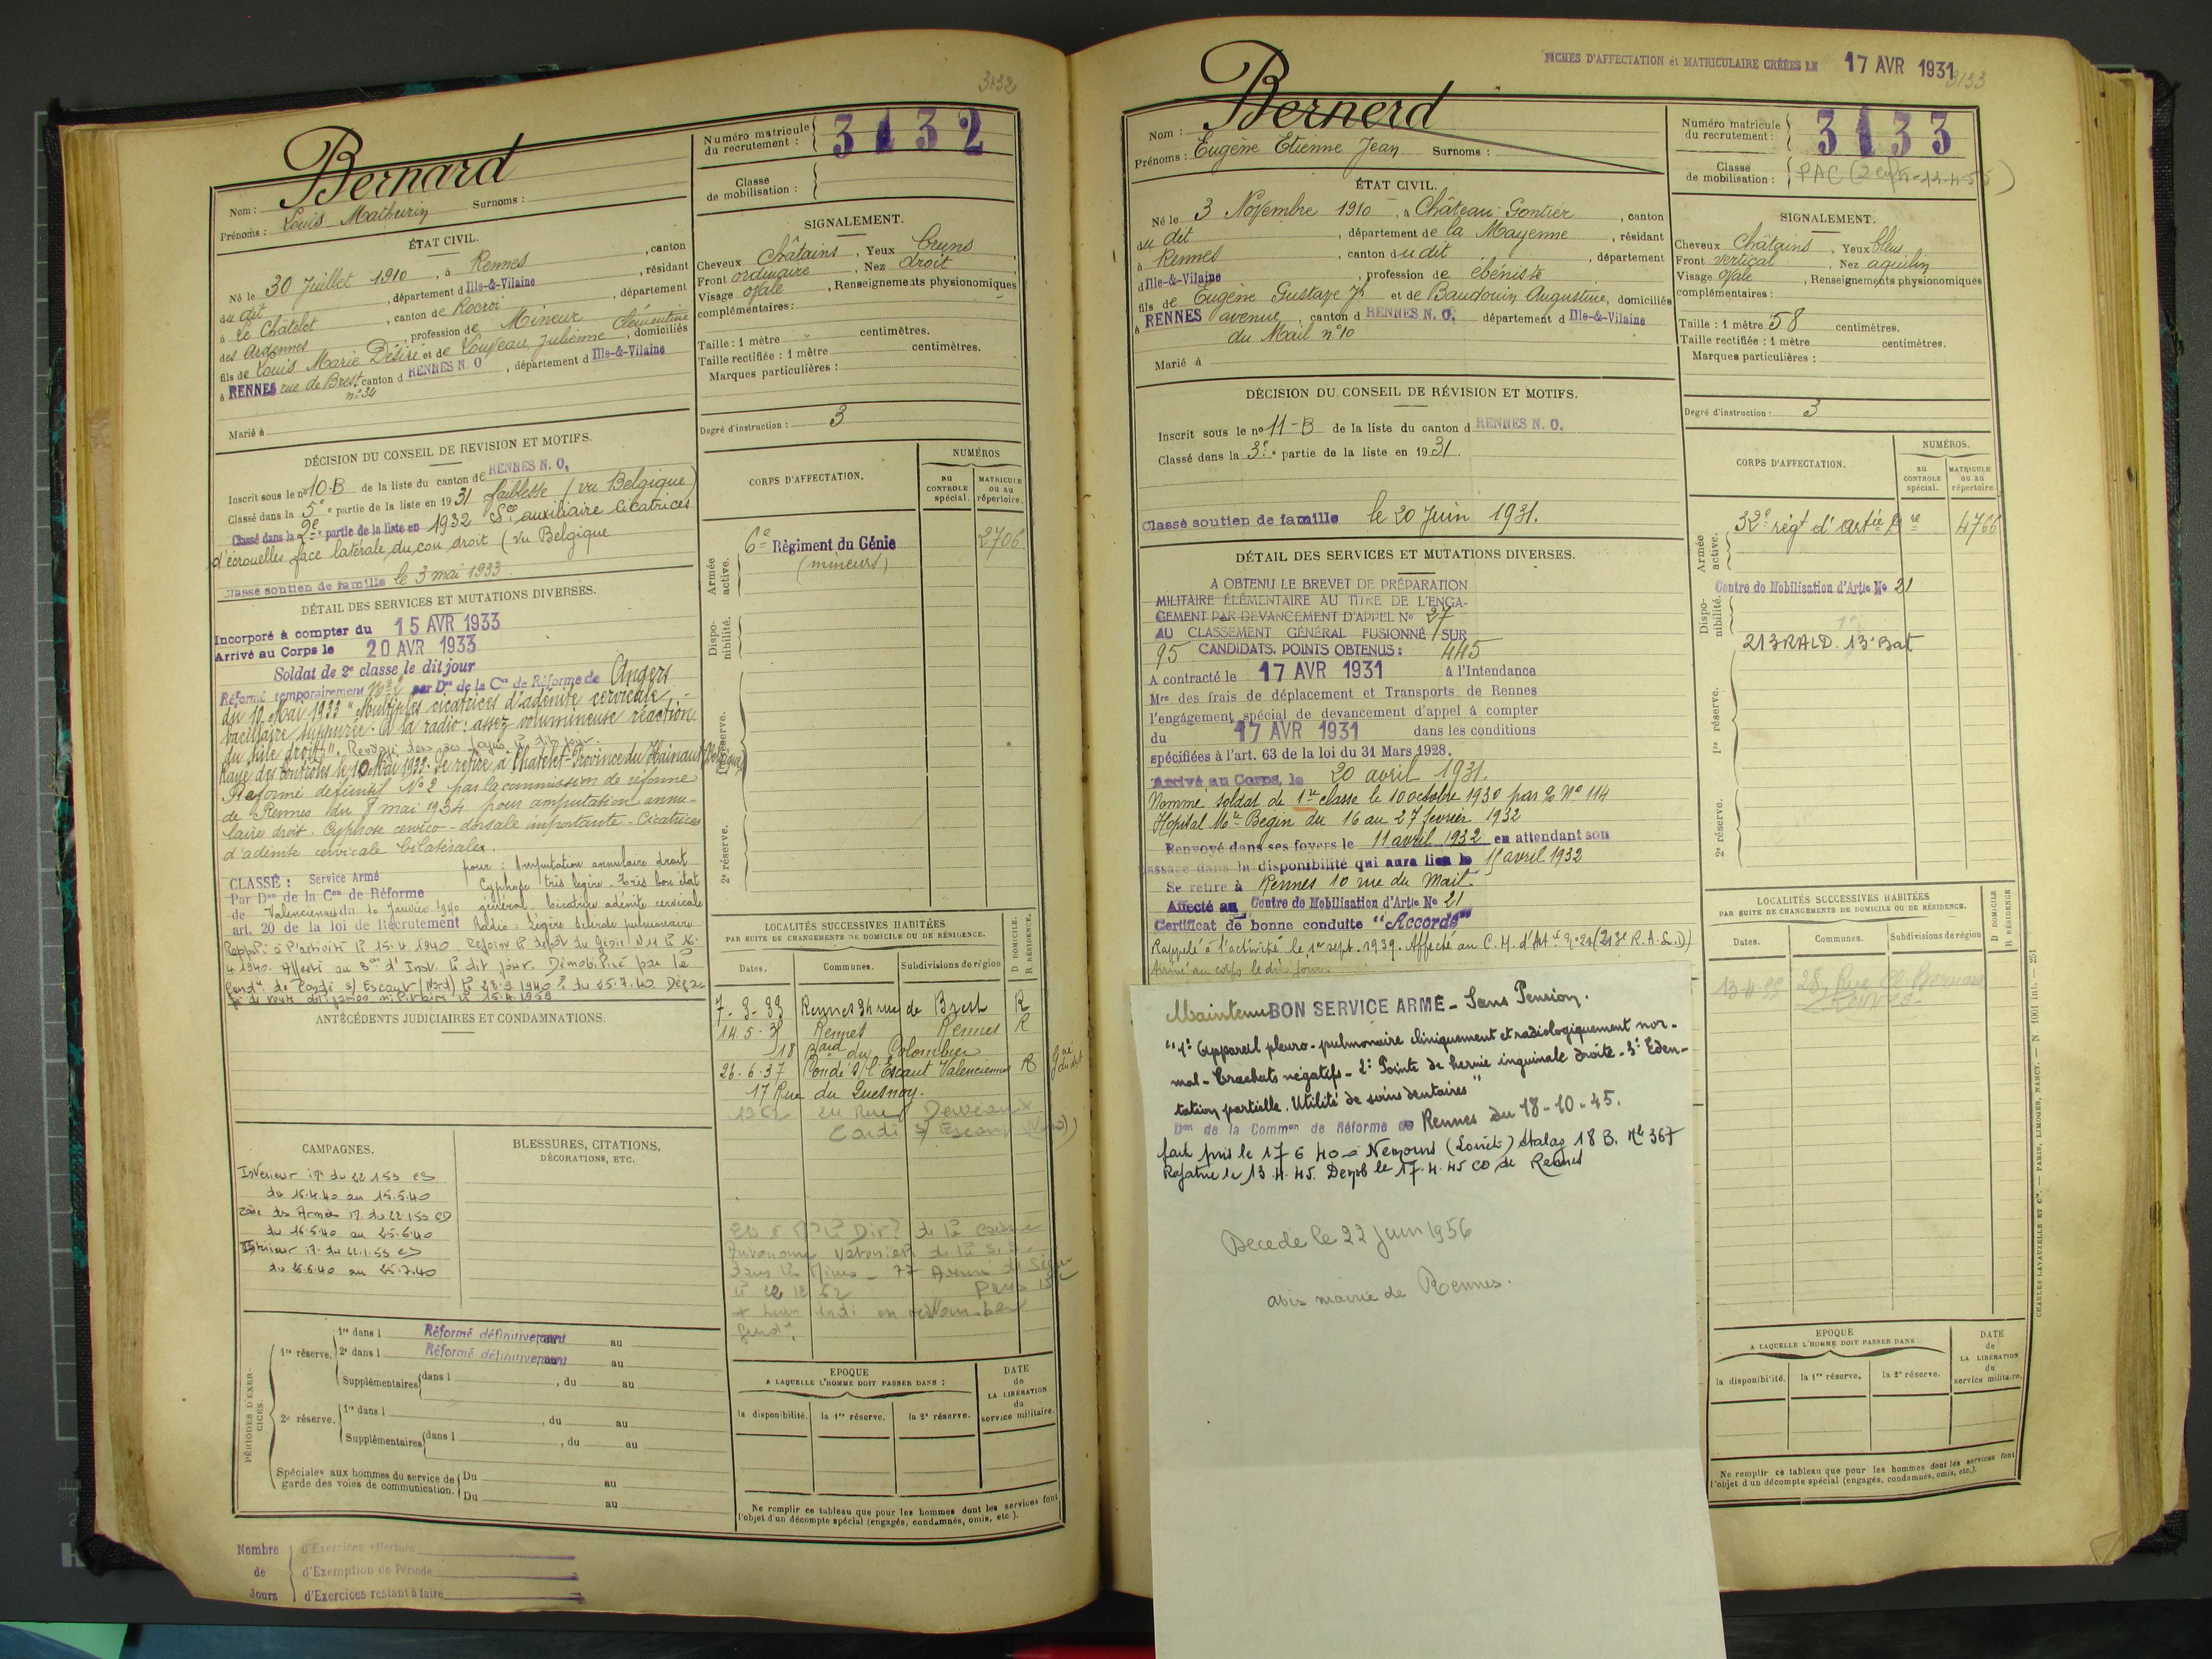 3132
Bernard
Nom :
Prénoms : Louis Mathurin Surnoms :
Numéro matricule du recrutement : 3132
Classe de mobilisation :
ÉTAT CIVIL.
Né le 30 Juillet 1910, à Rennes, canton
du dit, département d Ille-&-Vilaine, résidant
à Le Châtelet, canton de Rocroi, département
des Ardennes, profession de Mineur
fils de Louis Marie Désiré et de Louveau Julienne Clémentine, domiciliés
à RENNES rue de Brest canton d RENNES N. O, département d Ille-&-Vilaine
n° 34
Marié à
SIGNALEMENT.
Cheveux Châtains, Yeux bruns
Front ordinaire, Nez droit
Visage ovale, Renseignements physionomiques
complémentaires :
Taille : 1 mètre centimètres.
Taille rectifiée : 1 mètre centimètres.
Marques particulières :
Degré d'instruction : 3
DÉCISION DU CONSEIL DE REVISION ET MOTIFS.
Inscrit sous le n° 10-B de la liste du canton de RENNES N. O.
Classé dans la 5e partie de la liste en 1931 faiblesse (vu Belgique)
Classé dans la 2e partie de la liste en 1932 Sce auxiliaire Cicatrices
d'écrouelles face latérale du cou droit (vu Belgique
Classé soutien de famille le 3 mai 1933.
DÉTAIL DES SERVICES ET MUTATIONS DIVERSES.
Incorporé à compter du 15 AVR 1933
Arrivé au Corps le 20 AVR 1933
Soldat de 2e classe le dit jour
Réformé temporairement N° 2 par Don de la Con de Réforme de Angers
du 10 Mai 1933 "Multiples cicatrices d'adénite cervicale
bacillaire suppurée. A la radio : assez volumineuse réaction
du hile droit". Renvoyé dans ses foyers le dit jour.
Rayé des contrôles le 10 Mai 1933. Se retire à Chatelet-Province du Hainaut (Belgique)
Réformé définitif N° 2 par la commission de réforme
de Rennes du 8 mai 1934 pour amputation annu-
laire droit. Cyphose cervico-dorsale importante - Cicatrices
d'adénite cervicale bilatérales.
CLASSÉ : Service Armé pour : Amputation annulaire droit
Par Don de la Con de Réforme Cyphose très légère. Très bon état
de Valenciennes du 10 Janvier 1940 général. Cicatrice adénite cervicale
art. 20 de la loi de Recrutement Radio : Légère sclérose pulmonaire
Rappelé à l'activité le 15.4.1940. Rejoint le dépôt du Génie N 11 le 16.
4.1940. Affecté au Bon d'Inst. le dit jour. Démobilisé par la
Gend. de Condé s/ Escaut (Nord) le 28.9.1940
ANTÉCÉDENTS JUDICIAIRES ET CONDAMNATIONS.
CORPS D'AFFECTATION.
NUMÉROS
au CONTROLE spécial.
MATRICULE ou au répertoire.
Armée active.
6e Régiment du Génie 2706
(mineurs)
Dispo-nibilité.
1re réserve.
2e réserve.
LOCALITÉS SUCCESSIVES HABITÉES
PAR SUITE DE CHANGEMENTS DE DOMICILE OU DE RÉSIDENCE.
D DOMICILE. R RÉSIDENCE.
Dates. Communes. Subdivisions de région
7-9-33 Rennes 34 rue de Brest R
14.5.35 Rennes Rennes R
18 Bard du Colombier
26.6.37 Condé s/ l'Escaut Valenciennes R
17 Rue du Quesnoy.
CAMPAGNES.
Intérieur
du 15.4.40 au 15.5.40
Zone des Armées
du 16.5.40 au 25.6.40
Intérieur
du 26.6.40 au 25.7.40
BLESSURES, CITATIONS,
DÉCORATIONS, ETC.
PÉRIODES D'EXERCICES.
1re réserve.
1re dans l Réformé définitivement au
2e dans l Réformé définitivement au
Supplémentaires dans l , du au
2e réserve.
1re dans l , du au
Supplémentaires dans l , du au
Spéciales aux hommes du service de garde des voies de communication.
Du au
Du au
EPOQUE
A LAQUELLE L'HOMME DOIT PASSER DANS :
la disponibilité. la 1re réserve. la 2e réserve.
DATE de LA LIBÉRATION du service militaire.
Ne remplir ce tableau que pour les hommes dont les services font
l'objet d'un décompte spécial (engagés, condamnés, omis, etc.).
Nombre de Jours
d'Exercices effectués
d'Exemption de Période
d'Exercices restant à faire
FICHES D'AFFECTATION et MATRICULAIRE CRÉÉES LE 17 AVR 1931
3133
Bernerd
Nom :
Prénoms : Eugène Etienne Jean Surnoms :
Numéro matricule du recrutement : 3133
Classe de mobilisation : PAC
ÉTAT CIVIL.
Né le 3 Novembre 1910, à Château-Gontier, canton
du dit, département de la Mayenne, résidant
à Rennes, canton du dit, département
d Ille-&-Vilaine, profession de ébéniste
fils de Eugène Gustave Jh et de Baudouin Augustine, domiciliés
à RENNES avenue, canton d RENNES N. O. département d Ille-&-Vilaine
du Mail n° 10
Marié à
SIGNALEMENT.
Cheveux Châtains, Yeux bleus
Front vertical, Nez aquilin
Visage ovale, Renseignements physionomiques
complémentaires :
Taille : 1 mètre 58 centimètres.
Taille rectifiée : 1 mètre centimètres.
Marques particulières :
Degré d'instruction : 3
DÉCISION DU CONSEIL DE RÉVISION ET MOTIFS.
Inscrit sous le n° 11-B de la liste du canton d RENNES N. O.
Classé dans la 3e partie de la liste en 1931.
Classé soutien de famille le 20 Juin 1931.
DÉTAIL DES SERVICES ET MUTATIONS DIVERSES.
A OBTENU LE BREVET DE PRÉPARATION
MILITAIRE ÉLÉMENTAIRE AU TITRE DE L'ENGA-
GEMENT PAR DEVANCEMENT D'APPEL N° 27
AU CLASSEMENT GÉNÉRAL FUSIONNÉ SUR
95 CANDIDATS. POINTS OBTENUS : 445
A contracté le 17 AVR 1931 à l'Intendance
Mre des frais de déplacement et Transports de Rennes
l'engagement spécial de devancement d'appel à compter
du 17 AVR 1931 dans les conditions
spécifiées à l'art. 63 de la loi du 31 Mars 1928.
Arrivé au Corps, le 20 avril 1931.
Nommé soldat de 1re classe le 10 octobre 1930 par % N° 114
Hopital Mre Begin du 16 au 27 fevrier 1932
Renvoyé dans ses foyers le 11 avril 1932 en attendant son
passage dans la disponibilité qui aura lieu le 15 avril 1932
Se retire à Rennes 10 rue du Mail
Affecté au Centre de Mobilisation d'Artie N° 21
Certificat de bonne conduite "Accordé"
Rappelé à l'activité le 1er sept. 1939. Affecté au C.M. d'Art. N° 21 (213e R.A.L.D)
Arrivé au corps le dit jour.
Maintenu BON SERVICE ARMÉ - Sans Pension.
"1° Appareil pleuro-pulmonaire cliniquement et radiologiquement nor-
mal - Crachats négatifs - 2° Pointe de hernie inguinale droite - 3° Eden-
tation partielle. Utilité de soins dentaires"
Don de la Common de Réforme de Rennes du 18-10-45.
fait pris le 17 6 40 à Nemours (Loiret) Stalag 18 B. Mle 367
Rapatrié le 13.4.45. Demob le 17.4.45 CD de Rennes
Decede le 22 juin 1956
avis mairie de Rennes.
CORPS D'AFFECTATION.
NUMÉROS.
au CONTROLE spécial.
MATRICULE ou au répertoire.
Armée active.
32e régt d'artie 4766
Dispo-nibilité.
Centre de Mobilisation d'Artie N° 21
1re réserve.
213 RALD. 13e Bat
2e réserve.
LOCALITÉS SUCCESSIVES HABITÉES
PAR SUITE DE CHANGEMENTS DE DOMICILE OU DE RÉSIDENCE.
D DOMICILE R RÉSIDENCE
Dates. Communes. Subdivisions de région
28, Rue
Rennes
EPOQUE
A LAQUELLE L'HOMME DOIT PASSER DANS :
la disponibilité. la 1re réserve. la 2e réserve.
DATE de LA LIBÉRATION du service militaire.
Ne remplir ce tableau que pour les hommes dont les services font
l'objet d'un décompte spécial (engagés, condamnés, omis, etc.).
CHARLES-LAVAUZELLE ET Cie. — PARIS, LIMOGES, NANCY. — N 1001 int. — 251